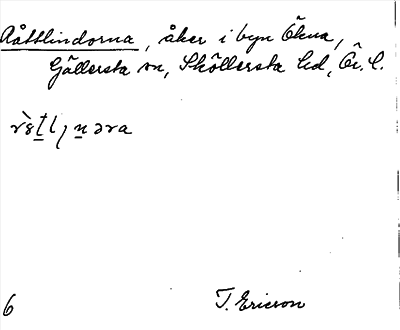 Råttlindorna, åker i byn Ökna,
Gällersta sn, Sköllersta hd, Ör. l.
T. Ericson
6